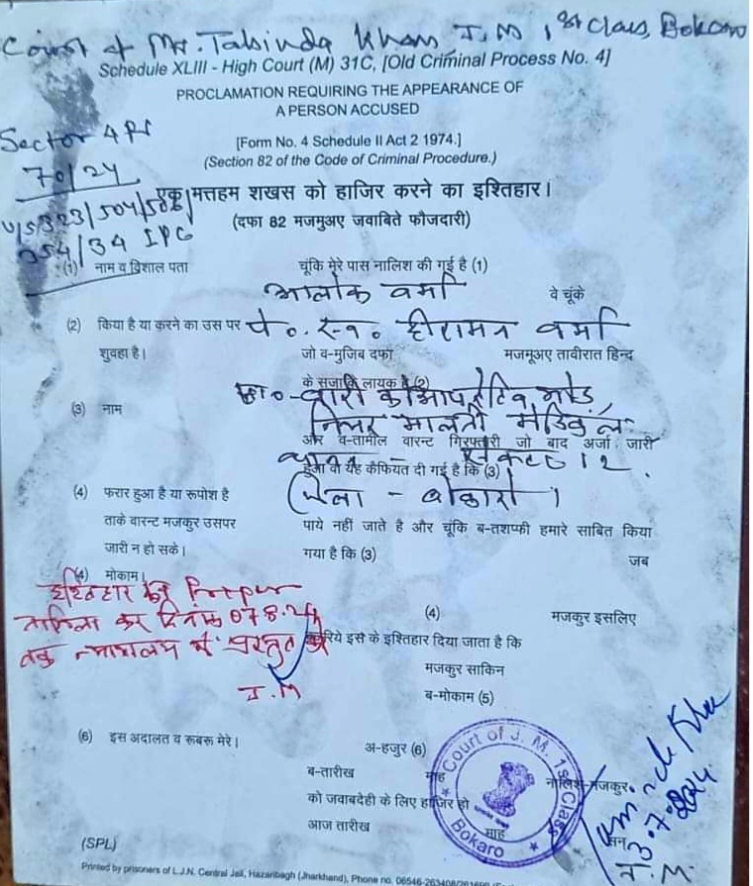 Court of Mr. Tabinda Khan J.M 1st Class, Bokaro
Schedule XLIII - High Court (M) 31C, [Old Criminal Process No. 4]
PROCLAMATION REQUIRING THE APPEARANCE OF
A PERSON ACCUSED
Sector 4 PS
70/24
[Form No. 4 Schedule II Act 2 1974.]
(Section 82 of the Code of Criminal Procedure.)
U/S 323/504/506/
354/34 IPC
एक मत्तहम शखस को हाजिर करने का इश्तिहार।
(दफा 82 मजमुअए जवाबिते फौजदारी)
(1) नाम व विशाल पता
चूंकि मेरे पास नालिश की गई है (1)
आलोक वर्मा
वे चूंके
(2) किया है या करने का उस पर
शुवहा है।
पे० स्व० हीरामन वर्मा
जो व-मुजिब दफा
मजमूअए तावीरात हिन्द
के सजा के लायक है (2)
(3) नाम
को-आपरेटिव मोड़,
नियर मालती मेडिकल
और व-तामील वारन्ट गिरफ्तारी जो बाद अर्जा जारी
थाना - सेक्टर 12.
हुआ वो यह कैफियत दी गई है कि (3)
जिला - बोकारो।
(4) फरार हुआ है या रूपोश है
ताके वारन्ट मजकुर उसपर
जारी न हो सके।
पाये नहीं जाते है और चूंकि ब-तशफ्फी हमारे साबित किया
गया है कि (3)
जब
(4) मोकाम।
इश्तिहार का
तामिला कर दिनांक 07.8.24
तक न्यायालय में प्रस्तुत करें
J.M
(4)
मजकुर इसलिए
जरिये इसे के इश्तिहार दिया जाता है कि
मजकुर साकिन
ब-मोकाम (5)
(6) इस अदालत व रूबरू मेरे।
अ-हजुर (6)
ब-तारीख
माह
नालिश मजकुर
को जवाबदेही के लिए हाजिर हो
आज तारीख
माह
सन्
Court of J. M. 1st Class
Bokaro
3.7.2024
J.M.
(SPL)
Printed by prisoners of L.J.N. Central Jail, Hazaribagh (Jharkhand), Phone no. 06546-